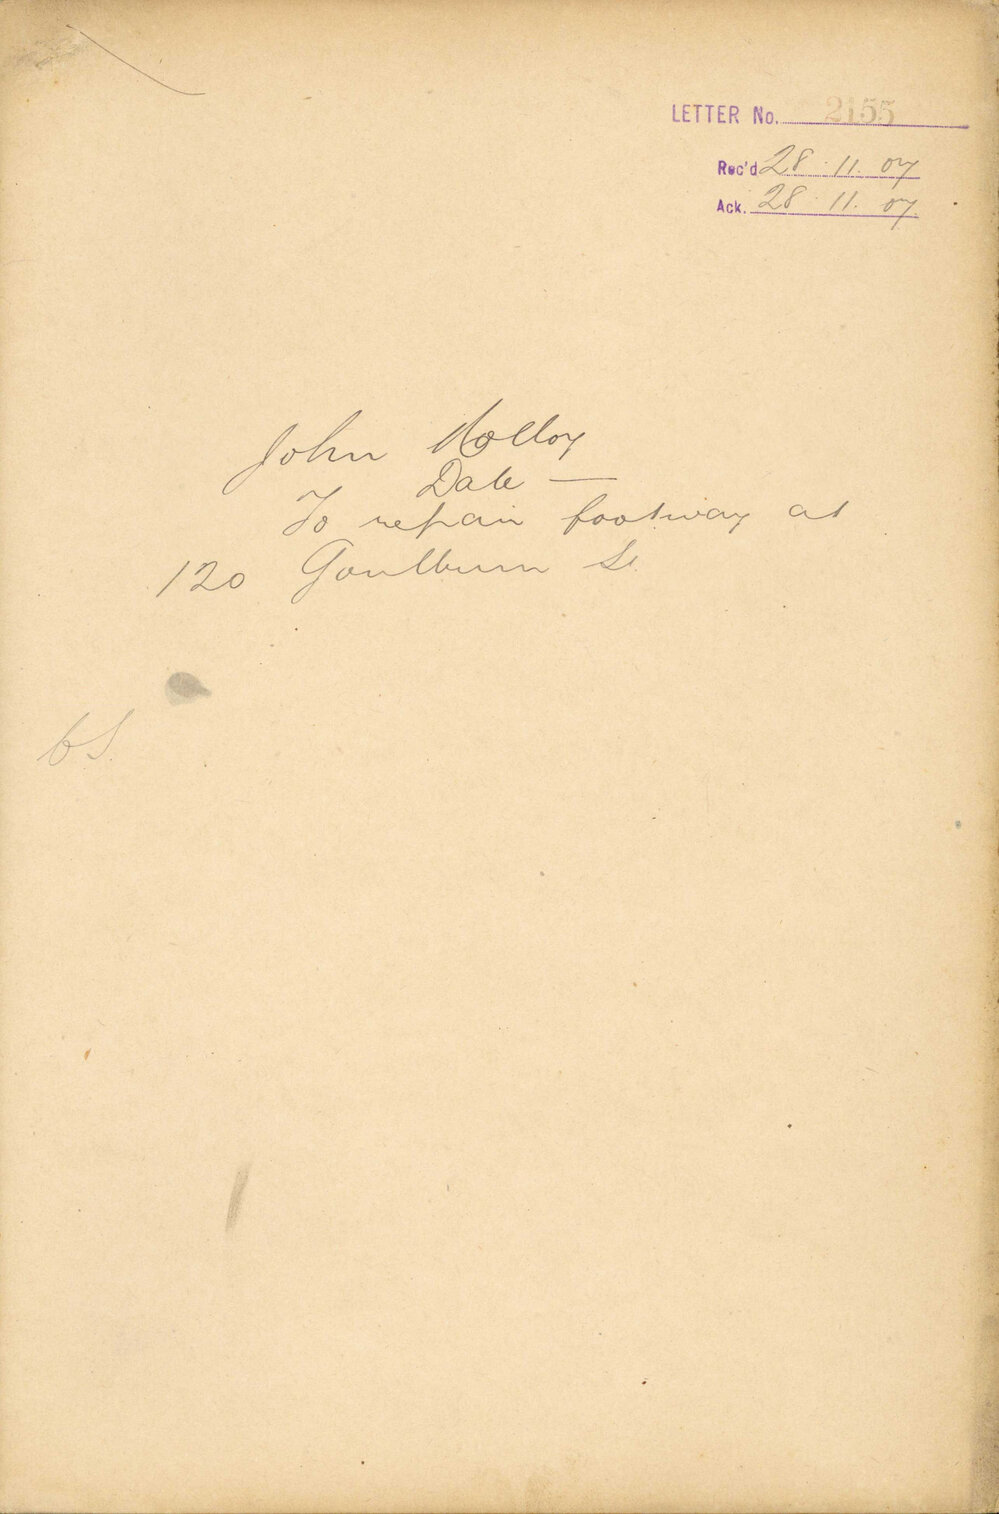 LETTER No. 2155
Rec'd 28.11.07
Ack. 28.11.07
John Molloy
Date —
To repair footway at
120 Goulburn St.